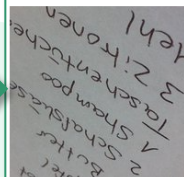 2 Butter
Schafskäse
Shampoo
1 Taschentücher
3 Zitronen
Mehl